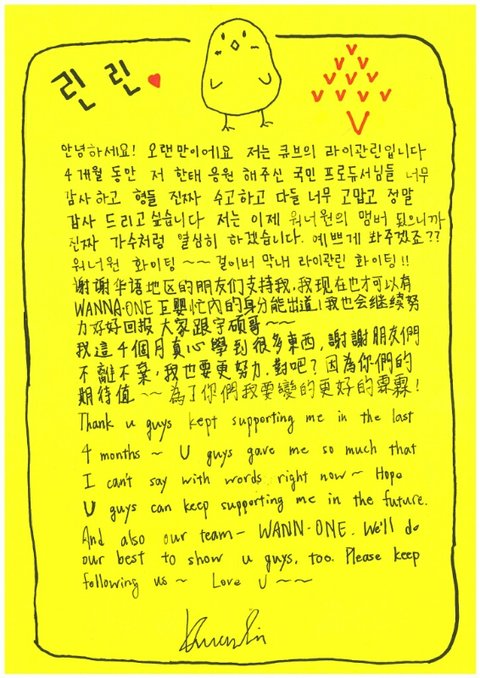 린 린
안녕하세요! 오랜만이에요 저는 큐브의 라이관린입니다
4개월 동안 저 한태 응원 해주신 국민 프로듀서님들 너무
감사 하고 형들 진짜 수고하고 다들 너무 고맙고 정말
감사 드리고 싶습니다 저는 이제 워너원의 멤버 됬으니까
진짜 가수처럼 열심히 하겠습니다. 예쁘게 봐주겠죠??
워너원 화이팅 ~~ 걸이버 막내 라이관린 화이팅!!
谢谢华语地区的朋友们支持我,我现在也才可以有
WANNA·ONE 忙內的身分能出道!我也会继续努
力好好回报大家跟宇硕哥~~
我這4個月真心學到很多東西,謝謝朋友們
不離不棄,我也要更努力,對吧?因為你們的
期待值~~為了你們我要變的更好的霖霖!
Thank u guys kept supporting me in the last
4 months ~ U guys gave me so much that
I can't say with words right now ~ Hope
U guys can keep supporting me in the future.
And also our team - WANN·ONE. We'll do
our best to show u guys, too. Please keep
following us ~ Love U ~~